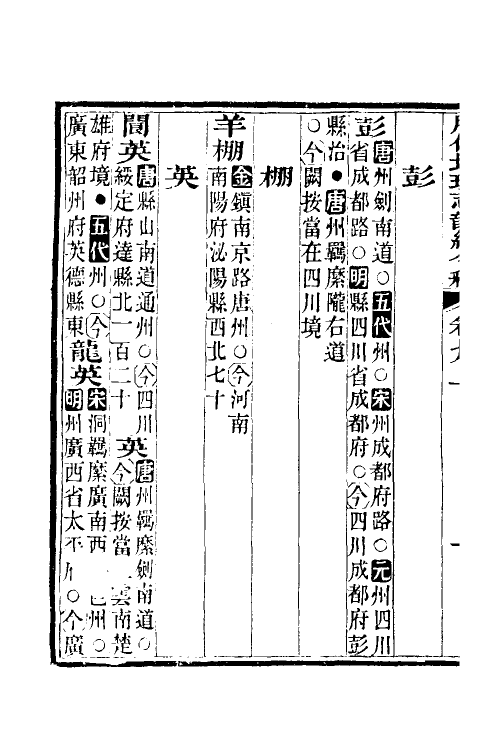 彭
彭唐州劍南道○五代州○宋州成都府路○元州四川
省成都路○明縣四川省成都府○今四川成都府彭
縣治●唐州羈縻隴右道
○今闕按當在四川境
棚
羊棚金鎮南京路唐州○今河南
南陽府泌陽縣西北七十
英
閬英唐縣山南道通州○今四川
綏定府達縣北一百二十
英唐州羈縻劍南道○
今闕按當 雲南楚
雄府境●五代州○今
廣東韶州府英德縣東
龍英宋洞羈縻廣南西 州○
明州廣西省太平 ○今廣